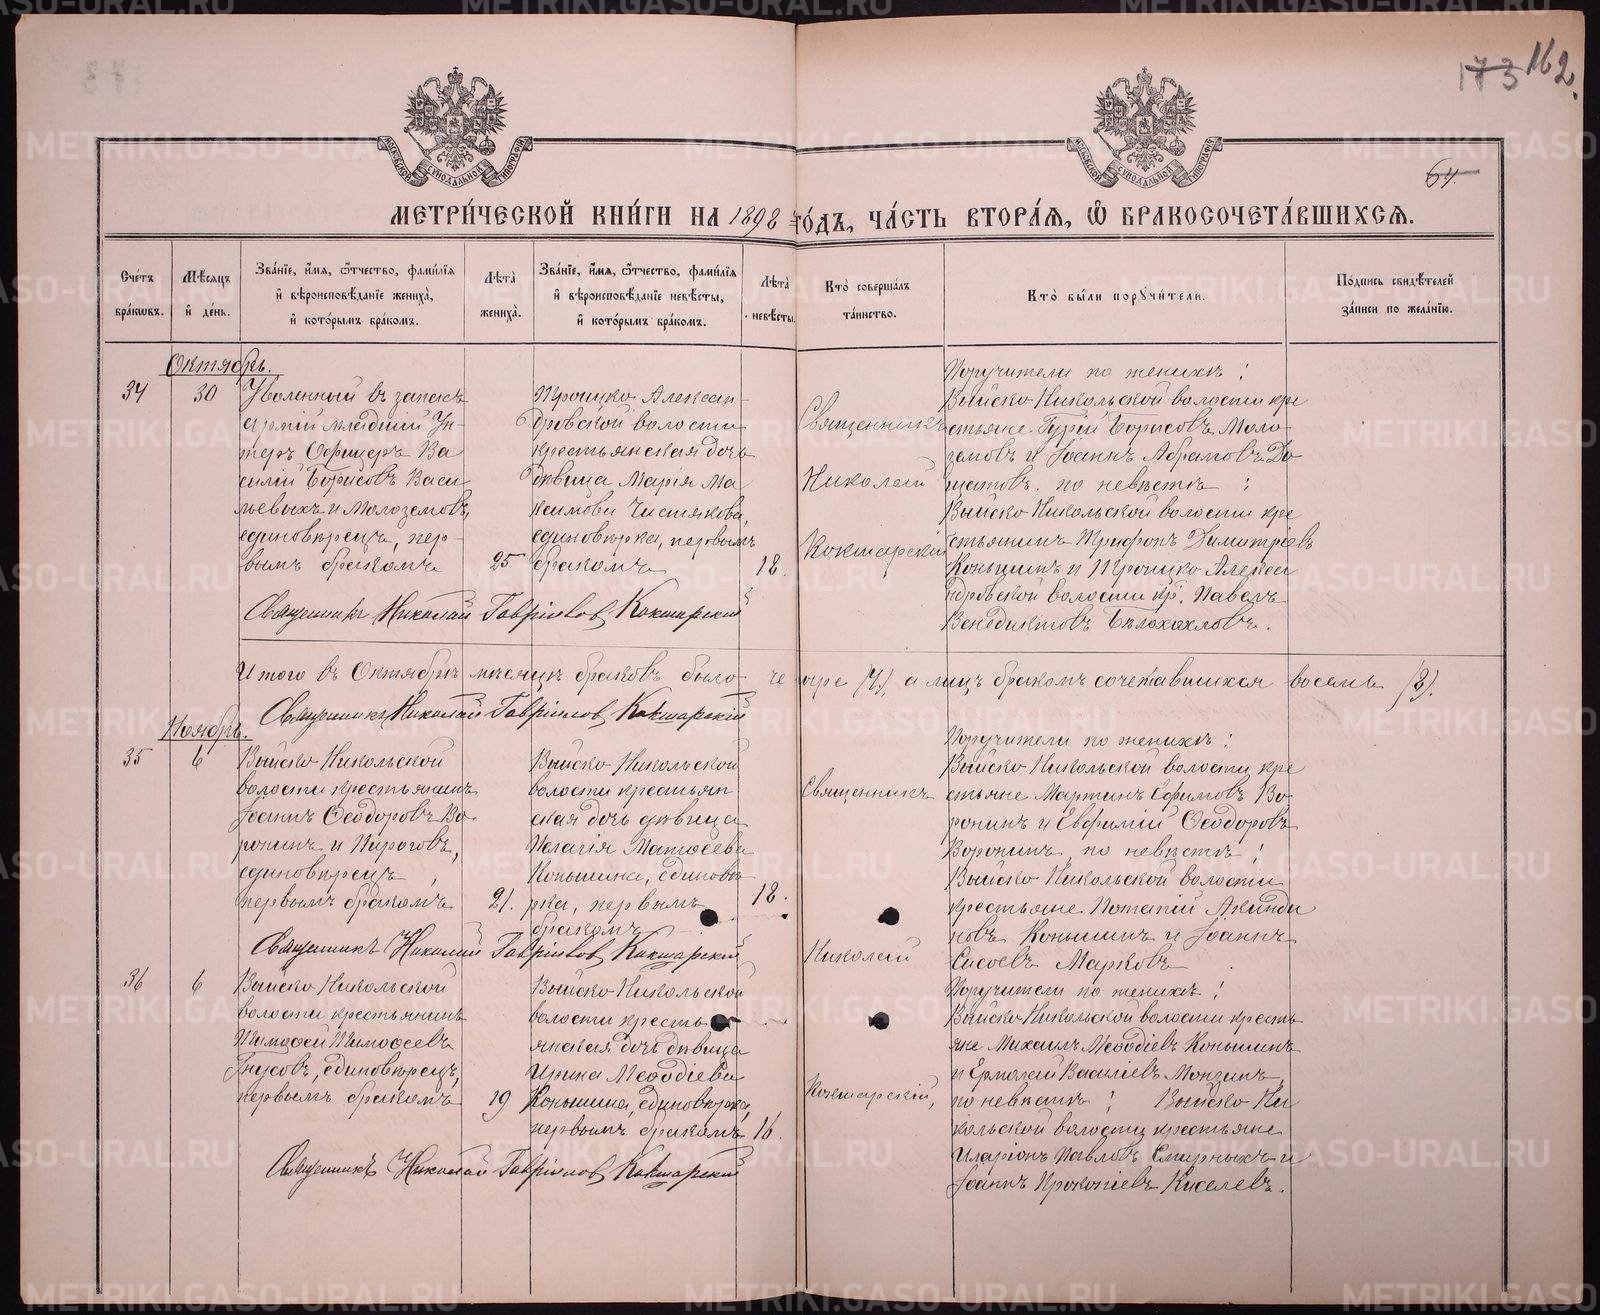 173 162.
64.
МОСКОВСКОЙ СУНОДАЛЬНОЙ ТИПОГРАФІИ
МОСКОВСКОЙ СУНОДАЛЬНОЙ ТИПОГРАФІИ
МЕТРИ́ЧЕСКОЙ КНИ́ГИ НА 1898 ГО́ДЪ, ЧА́СТЬ ВТОРА́Ѧ, Ѽ БРАКОСОЧЕТА́ВШИХСѦ.
Сче́тъ бра́кѡвъ.
Мѣ́сяцъ и҆ де́нь.
Зва́нїе, и҆́мѧ, ѻ҆́тчество, фами́лїѧ и҆ вѣроисповѣ́данїе жениха̀, и҆ кото́рымъ бра́комъ.
Лѣ́та жениха̀.
Зва́нїе, и҆́мѧ, ѻ҆́тчество, фами́лїѧ и҆ вѣроисповѣ́данїе невѣ́сты, и҆ кото́рымъ бра́комъ.
Лѣ́та невѣ́сты.
Кто̀ соверша́лъ та́инство.
Кто̀ бы́ли поручи́тели.
По́дпись свидѣ́телей за́писи по жела́нїю.
Октябрь.
34
30
Уволенный въ запасъ
арміи младшій Ун-
теръ Офицеръ Ва
силій Борисовъ Васи
льевыхъ и Молоземовъ,
единовѣрецъ, пер-
вымъ бракомъ
25
Троицко Алексан-
дровской волости
крестьянская дочь
дѣвица Марія Ма
ксимова Чистякова,
единовѣрка, первымъ
бракомъ
18.
Священникъ
Николай
Кокшарскій
Поручители по женихѣ:
Выйско Никольской волости кре
стьяне Гурій Борисовъ Моло
земовъ и Іоаннъ Абрамовъ До
шатовъ. по невѣстѣ:
Выйско Никольской волости кре
стьянинъ Трифонъ Димитріевъ
Коньшинъ и Троицко Алексан
дровской волости кр. Павелъ
Венедиктовъ Бѣлохахловъ.
Священникъ Николай Гавріиловъ Кокшарскій
Итого въ Октябрѣ мѣсяцѣ браковъ было четыре (4), а лицъ бракомъ сочетавшихся восемь (8).
Священникъ Николай Гавріиловъ Кокшарскій
Ноябрь.
35
6
Выйско Никольской
волости крестьянинъ
Іоаннъ Ѳеодоровъ Во
ронинъ и Пироговъ,
единовѣрецъ,
первымъ бракомъ
21.
Выйско Никольской
волости крестьян
ская дочь дѣвица
Пелагія Матѳеева
Коньшина, единовѣ
рка, первымъ
бракомъ
18.
Священникъ
Николай
Кокшарскій,
Поручители по женихѣ:
Выйско Никольской волости кре
стьяне Мартинъ Ефимовъ Во
ронинъ и Евфимій Ѳеодоровъ
Воронинъ, по невѣстѣ:
Выйско Никольской волости
крестьяне Потапій Акинди
новъ Коньшинъ и Іоаннъ
Сысоевъ Марковъ
Священникъ Николай Гавріиловъ Кокшарскій
36
6
Выйско Никольской
волости крестьянинъ
Тимоѳей Тимоѳеевъ
Гнусовъ, единовѣрецъ,
первымъ бракомъ
19
Выйско Никольской
волости кресть
янская дочь дѣвица
Ирина Меѳодіева
Коньшина, единовѣрка,
первымъ бракомъ
16.
Поручители по женихѣ:
Выйско Никольской волости кресть
яне Михаилъ Меѳодіевъ Коньшинъ
и Ермолай Василіевъ Монзинъ,
по невѣстѣ: Выйско Ни
кольской волости крестьяне
Иларіонъ Павловъ Смирныхъ и
Іоаннъ Прокопіевъ Киселевъ.
Священникъ Николай Гавріиловъ Кокшарскій
METRIKI.GASO-URAL.RU